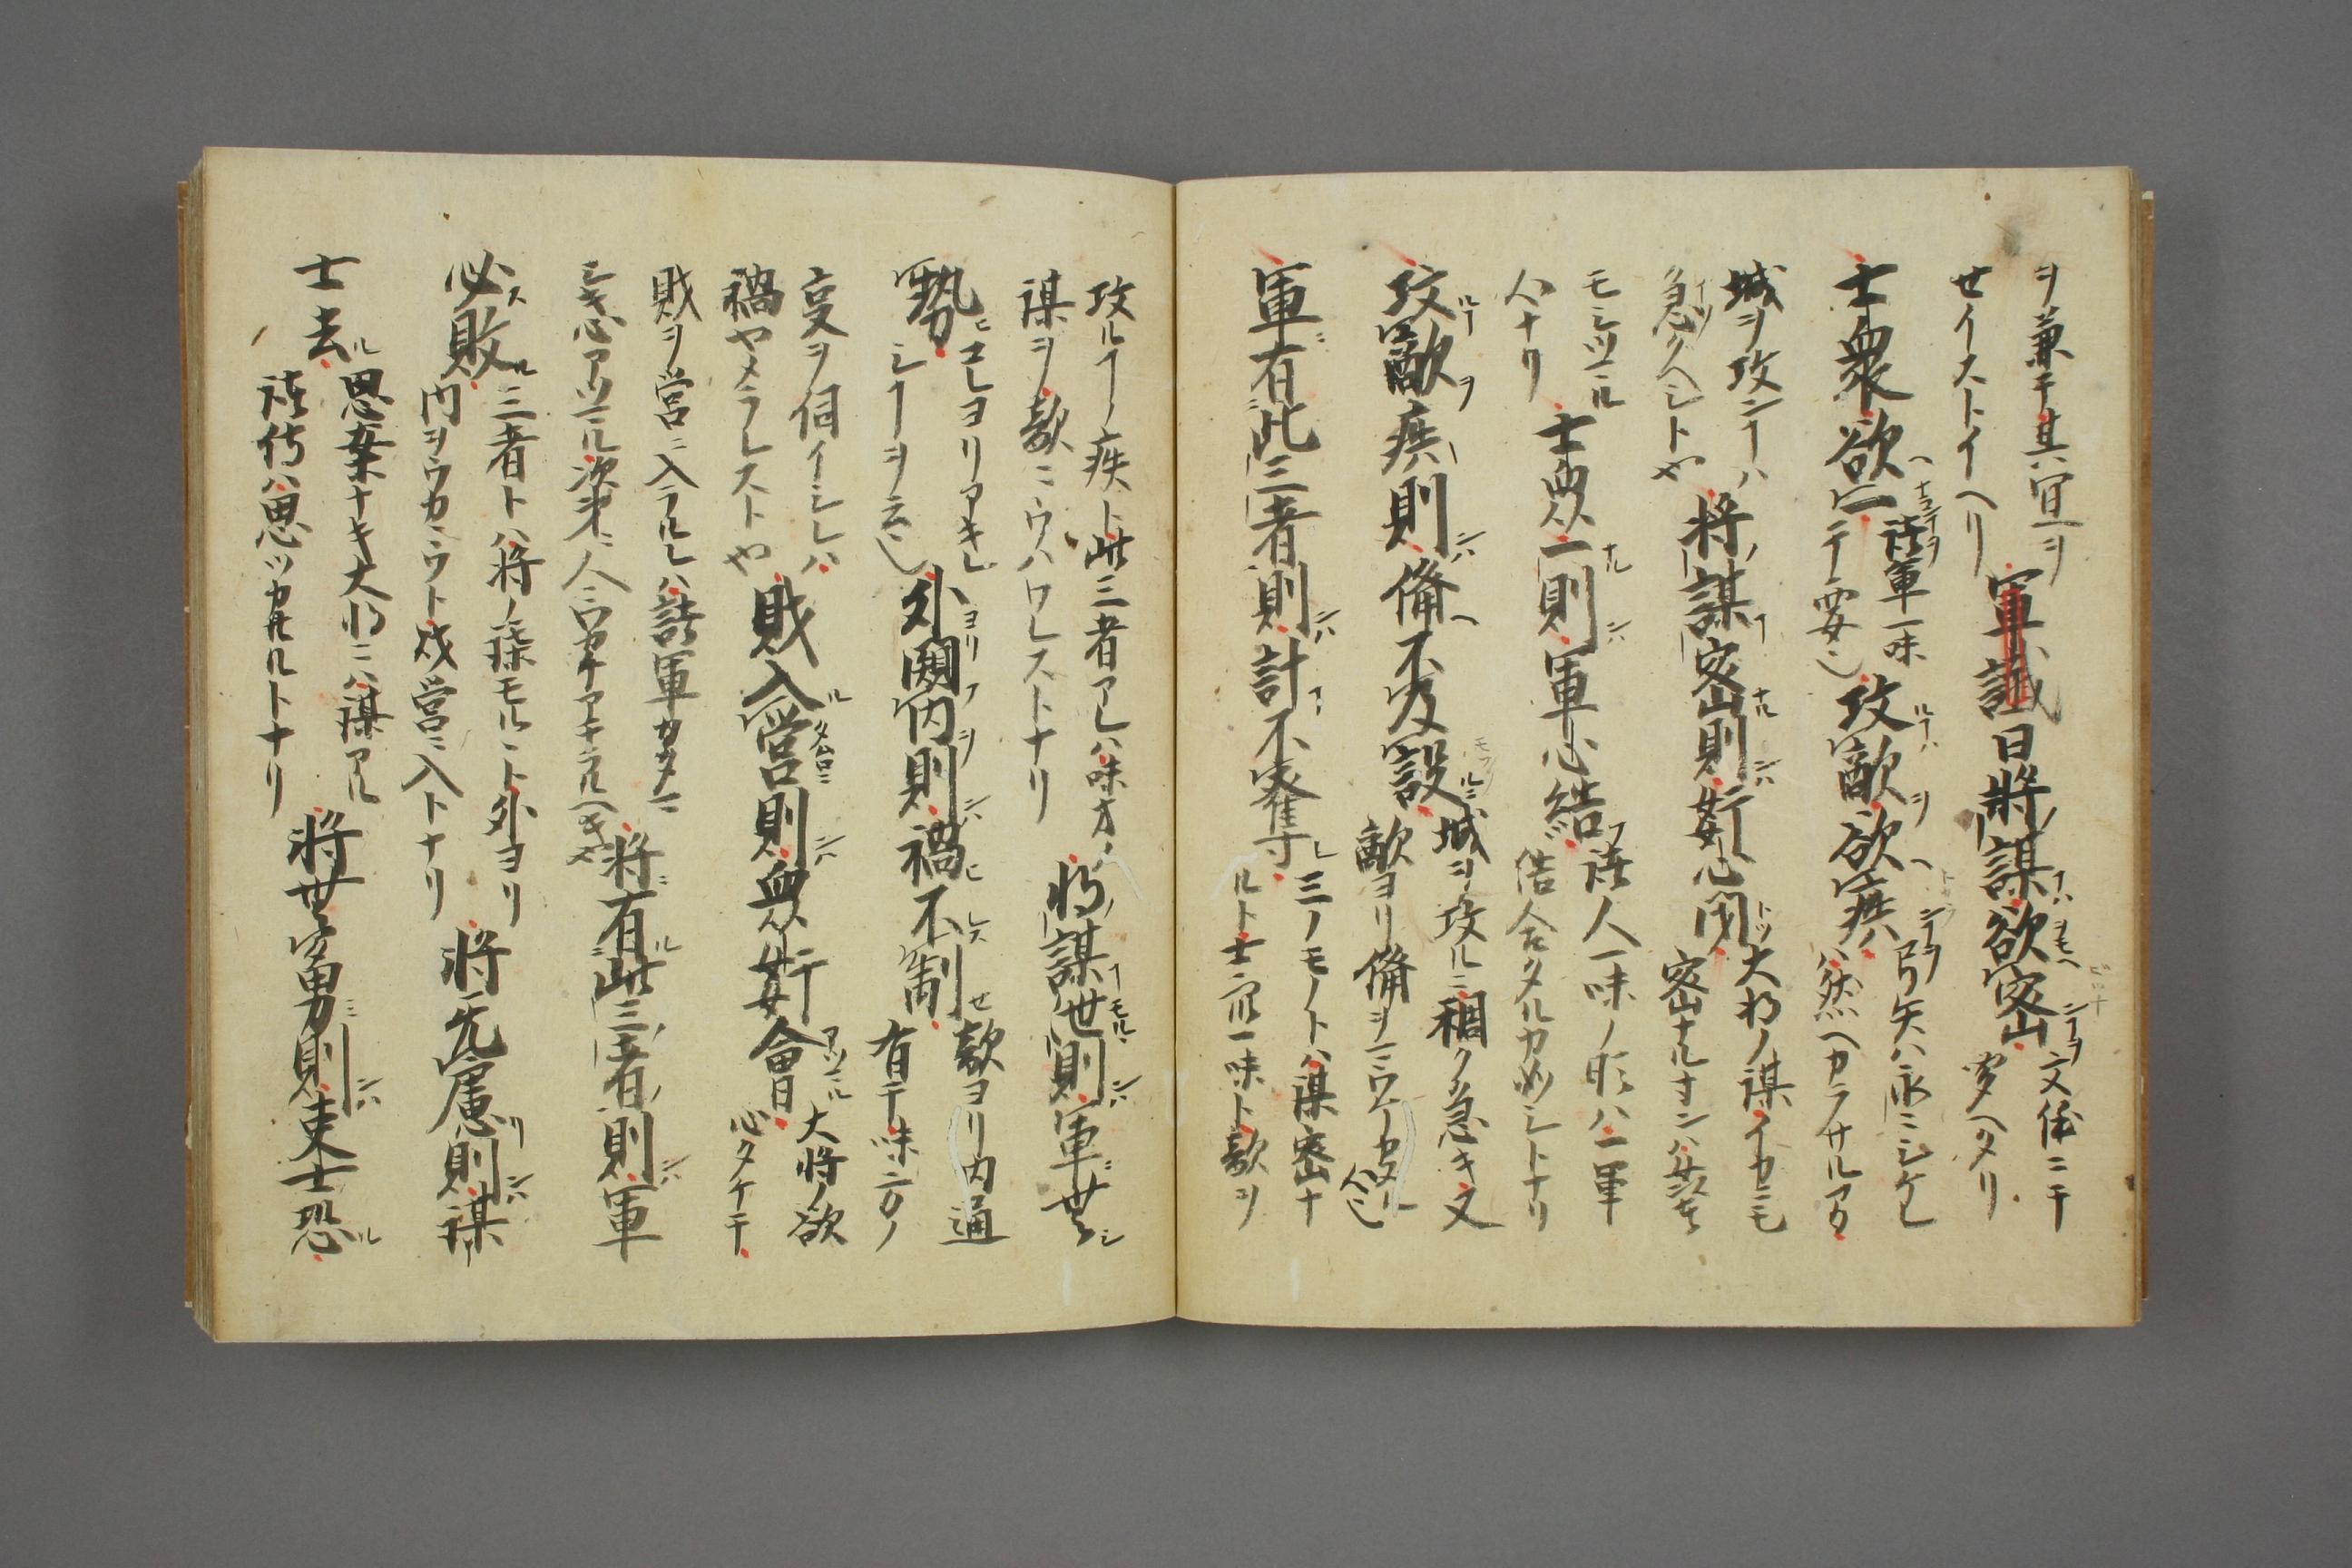 ヲ兼テ其宜ヲ
せイストイヘリ
軍讖曰將謀欲密
文依ニテ
聞ヘタリ
士衆欲一
諸軍一味
ニテ要也
攻敵欲疾
弓矢ハ永ニシケレ
ハ然ヘカラサルアタ
城ヲ攻ンイハ
急クヘシトや
将謀密則姧心閉
大将ノ謀イカニモ
密ナルナンハ
モシツニル
人ナリ
士衆一則軍心結
諸人一味ノ時ハ一軍
結合タルカ如シトナリ
攻敵疾則備不及設
城ヲ攻ルニ稠ク急キ又
敵ヨリ備ヲ
軍有此三者則計不奪
三ノモノトハ謀密ナ
ルト士衆一味ト敵ヲ
攻ルイノ疾ト此三者アレハ味方ノ
謀ヲ敵ニウハワレストナリ
將謀泄則軍無
勢
コレヨリアキレ
シイヲ云也
外闚内則禍不制
敵ヨリ内通
有テ味方ノ
変ヲ伺イシレハ
禍ヤメラレストや
財入営則衆姧會
大将ノ欲
心タケテ
財ヲ営ニ入ラルレハ諸軍カタマ
シキ心アツマル次第ニ人
將有此三者則軍
必敗
三者トハ将ノ謀モルヽト外ヨリ
内ヲウカヽウト財営ニ入トナリ
將无慮則謀
士去
思案ナキ大将ニハ謀アル
諸侍ハ思ツカルルトナリ
將無勇則吏士恐